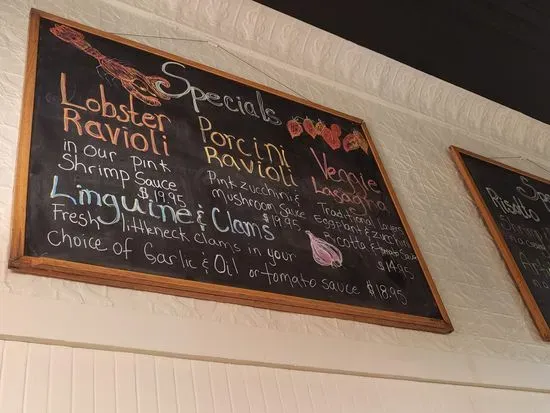 Specials
Lobster
Ravioli
in our pink
Shrimp Sauce
$19.95
Porcini
Ravioli
Pink zucchini &
mushroom sauce
$19.95
Veggie
Lasagna
Traditional Layers
Eggplant & zucchini
Ricotta & Tomato Sauce
$14.95
Linguine & Clams
Fresh littleneck clams in your
choice of Garlic & Oil or tomato sauce $18.95
Risotto
Shrimp
in a